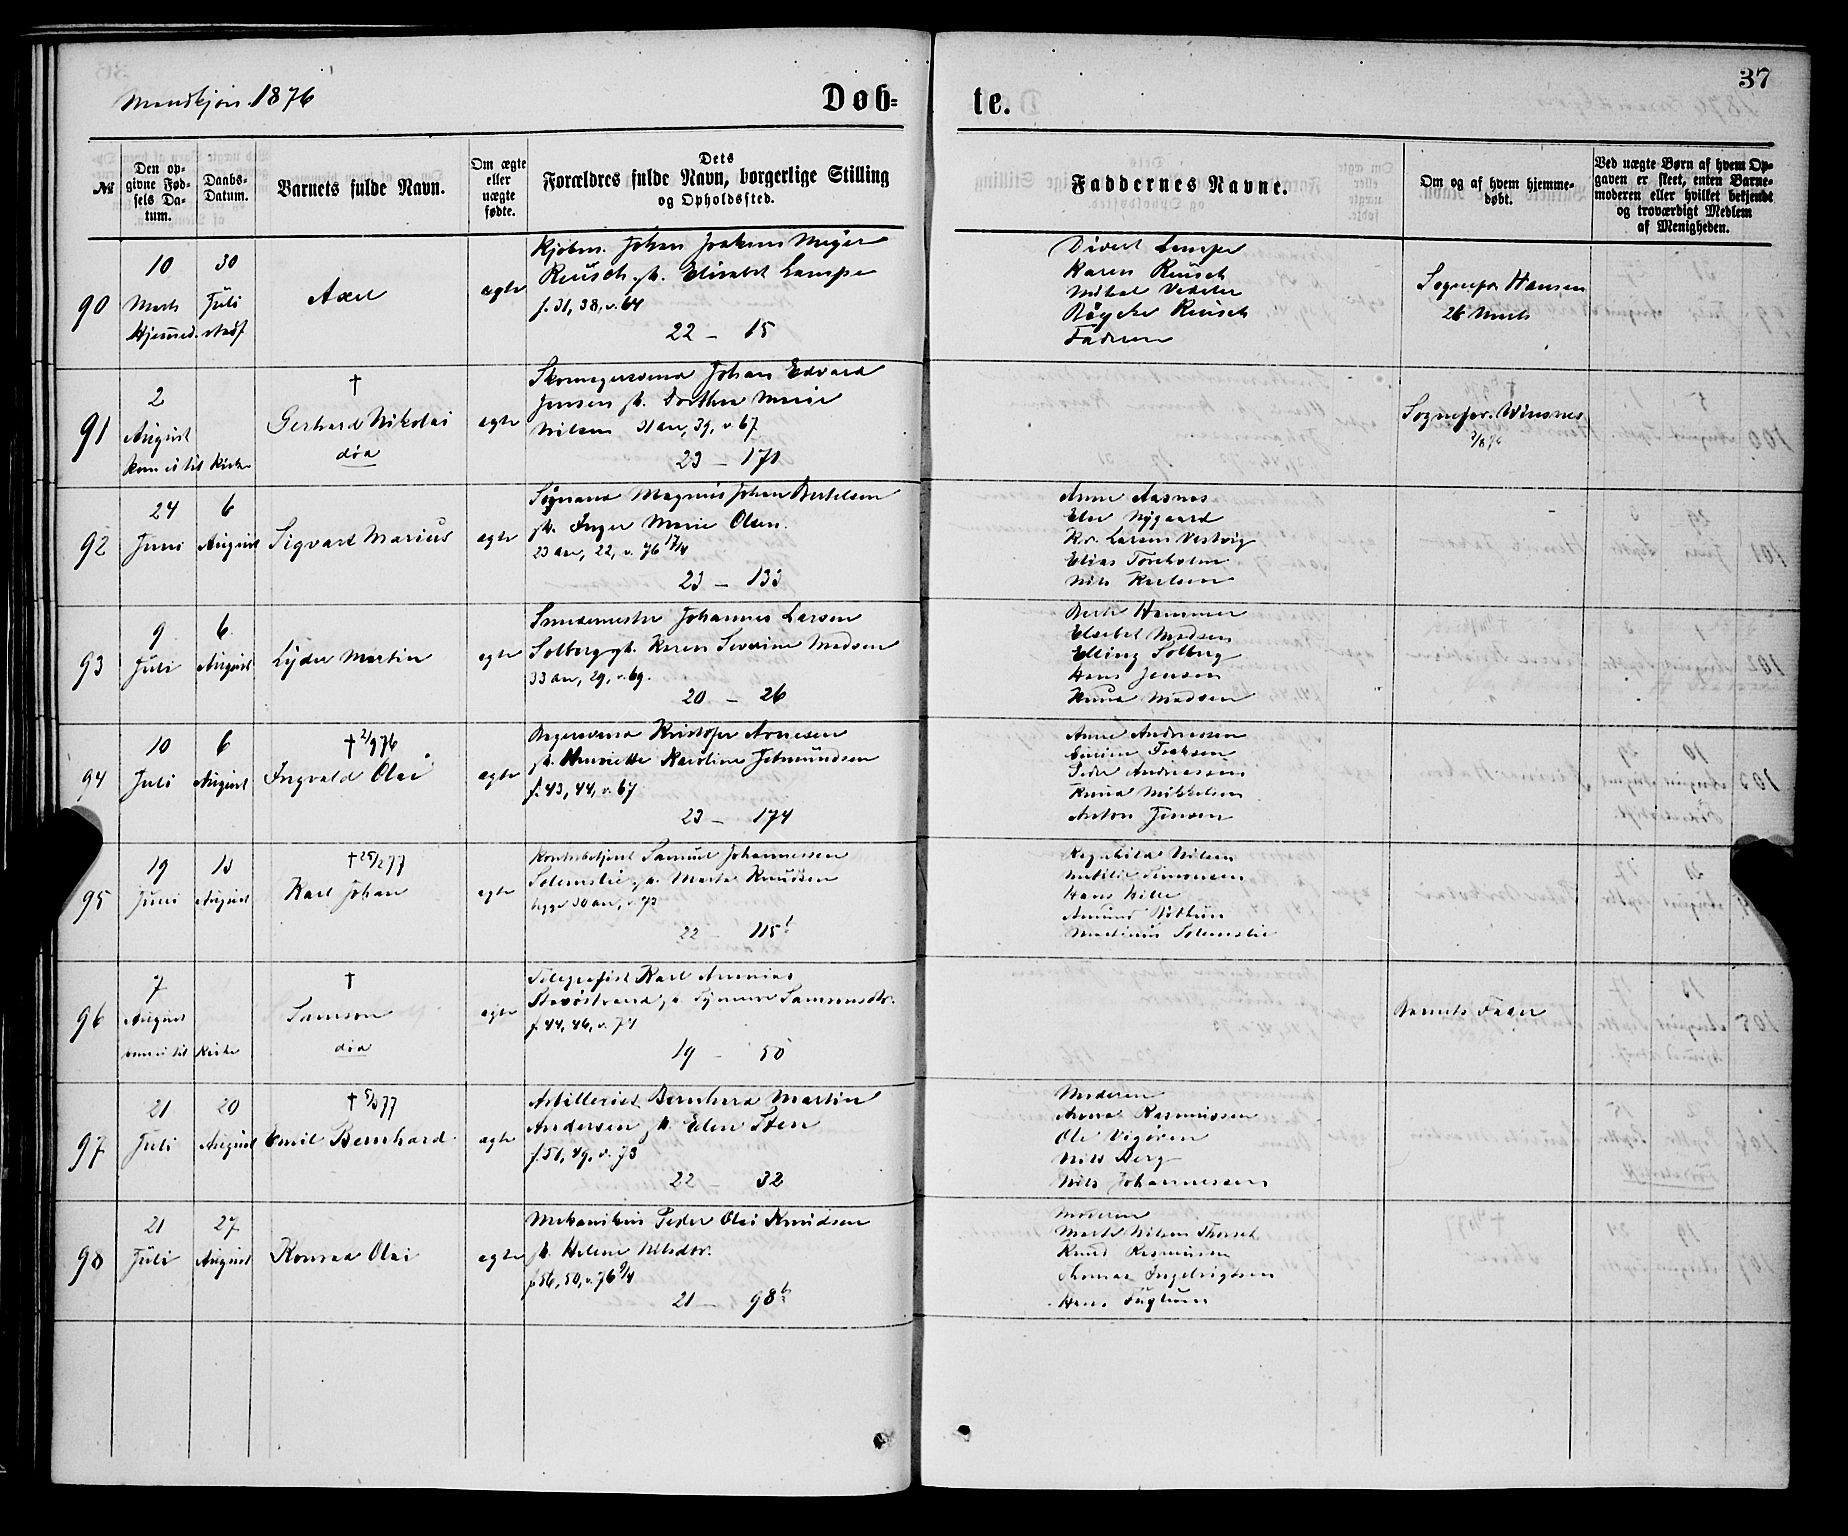 37
Mandkjøn 1876
Døb= te.
№
Den op-
givne Fød-
sels Da-
tum.
Daabs-
Datum.
Barnets fulde Navn.
Om ægte
eller
uægte
fødte.
Dets
Forældres fulde Navn, borgerlige Stilling
og Opholdssted.
Faddernes Navne.
Om og af hvem hjemme-
døbt.
Ved uægte Børn af hvem Op-
gaven er skeet, enten Barne-
moderen eller hvilket bekjendt
og troværdigt Medlem
af Menigheden.
90
10 Marts
30 Juli
Hjemmed. stadf
Axel
ægte
Kjøbm. Johan Joakim Meyer
Reusch, h. Elisabet Lampe
f. 31, 38, v. 64
22 - 15
Divert Lampe
Karen Reusch
Mikal Vedeler
Reusch
Faderen
Sognepr Hansen
26 Marts
91
2 August
kom ei til Kirke
†
Gerhard Nikolai
død
ægte
Skomagersvend Johan Edvard
Jensen h. Dorthea Marie
Nilsen 31 aar, 39, v. 67
23 - 171
Sognepr. Winsnes
2/8 76
92
24 Juni
6 August
Sigvart Marius
ægte
Sømand Magnus Johan Bertelsen
h. Inger Marie Olsen.
23 aar, 22, v. 76 17/4
23 - 133
Anne Aasnes
Else Nygaard
Kr. Larsen Vestvig
Elias Toreholm
Nils Karlsen
93
9 Juli
6 August
Lyder Martin
ægte
Smedemester Johannes Larsen
Solberg, h. Karen Severine Madsen
33 aar, 29, v. 69.
20 - 26
Berte Hammer
Elsebet Madsen
Elling Solberg
Hans Jensen
Knud Madsen
94
10 Juli
6 August
† 2/9 76
Ingvald Olai
ægte
Bagersvend Kristofer Arnesen
h. Henriette Karoline Jetmundsen
f. 43, 44, v. 67
23 - 174
Anne Andreassen
Peder Andreassen
Knud Mikkelsen
Anton Jensen
95
19 Juni
13 August
† 25/2 77
Karl Johan
ægte
Kontorbetjent Samuel Johannessen
Solemslie, h. Marta Knudsen
begge 30 aar, v. 73
22 - 115 b
Ragnhilda Nilsen
Matilde Simonsen
Hans Hille
Amund
Martinus Solemslie
96
7 August
kom ei til Kirke
†
Samson
død
ægte
Telegrafist Karl Ananias
h. Synneve Samsonsdtr.
f. 44, 46, v. 74
19 - 50
Barnets Fader
97
21 Juli
20 August
† 5/3 77
Emil Bernhard
ægte
Artillerist Bernhard Martin
Andersen h. Elen Sten
f. 51, 49, v. 73
22 - 32
Moderen
Anna Rasmussen
Ole Vigøren
Nils Berg
Nils Johannessen
98
21 Juli
27 August
Konrad Olai
ægte
Mekanikus Peder Olai Knudsen
h. Helene Nilsdtr.
f. 56, 50, v. 76 9/4
21 - 98 b
Moderen
Marte Nilsen
Knud Rasmussen
Thomas Ingebrigtsen
Hans Fuglum